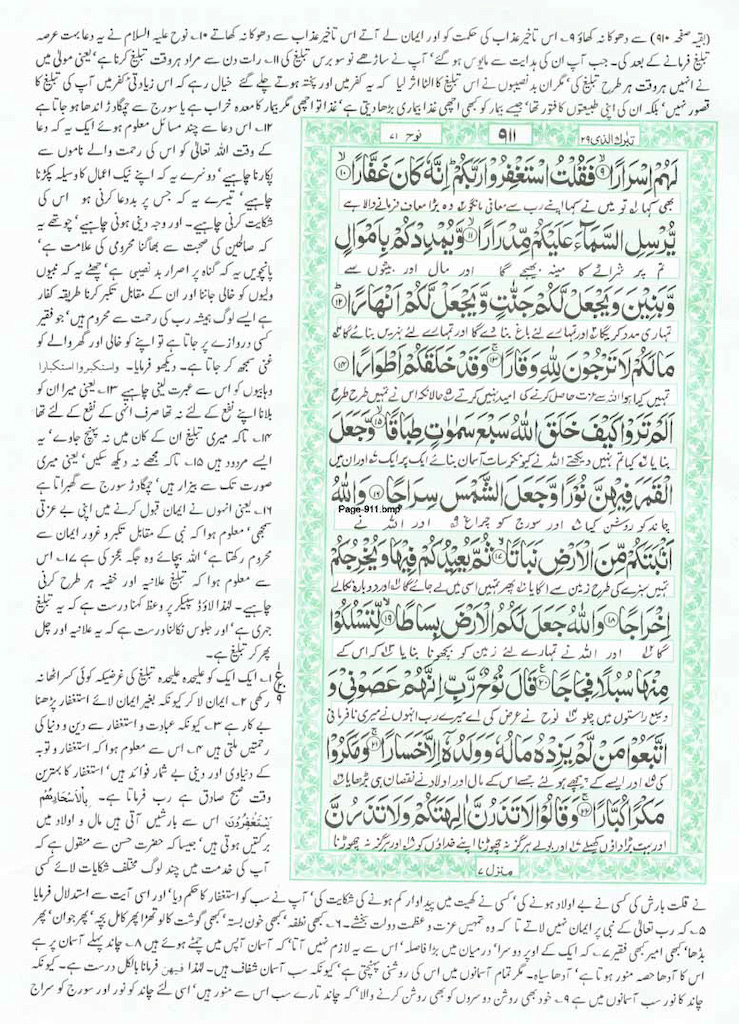 (بقیہ صفحہ ۹۱۰) سے دھوکا نہ کھاؤ ۹۔ اس تاخیر عذاب کی حکمت کو اور ایمان لے آتے اس تاخیر عذاب سے دھوکا نہ کھاتے ۱۰۔ نوح علیہ السلام نے یہ دعا بہت عرصہ
تبلیغ فرمانے کے بعد کی۔ جب آپ ان کی ہدایت سے مایوس ہو گئے‘ آپ نے ساڑھے نو سو برس تبلیغ کی ۱۱۔ رات دن سے مراد ہر وقت تبلیغ کرنا ہے‘ یعنی مولیٰ میں
نے انہیں ہر وقت ہر طرح تبلیغ کی‘ مگر ان بد نصیبوں نے اس تبلیغ کا الٹا اثر لیا کہ یہ کفر میں اور پختہ ہوتے چلے گئے خیال رہے کہ اس زیادتی کفر میں آپ کی تبلیغ کا
قصور نہیں‘ بلکہ ان کی اپنی طبیعتوں کا فتور تھا‘ جیسے بیمار کو کبھی اچھی غذا بیماری بڑھا دیتی ہے‘ غذا تو اچھی مگر بیمار کا معدہ خراب ہے یا سورج سے چمگادڑ اندھا ہو جاتا ہے
تبٰرک الذی ۲۹
۹۱۱
نوح ۷۱
لَهُمْ اِسْرَارًا ۙ﴿۹﴾ فَقُلْتُ اسْتَغْفِرُوْا رَبَّكُمْ ؕ اِنَّهٗ كَانَ غَفَّارًا ۙ﴿۱۰﴾
بھی کہا تو میں نے کہا اپنے رب سے معافی مانگو وہ بڑا معاف فرمانے والا ہے
يُّرْسِلِ السَّمَآءَ عَلَيْكُمْ مِّدْرَارًا ۙ﴿۱۱﴾ وَّيُمْدِدْكُمْ بِاَمْوَالٍ
تم پر شراٹے کا مینہ بھیجے گا اور مال اور بیٹوں سے
وَّبَنِيْنَ وَيَجْعَلْ لَّكُمْ جَنّٰتٍ وَّيَجْعَلْ لَّكُمْ اَنْهٰرًا ؕ﴿۱۲﴾
تمہاری مدد کرے گا اور تمہارے لئے باغ بنا دے گا اور تمہارے لئے نہریں بنائے گا
مَا لَكُمْ لَا تَرْجُوْنَ لِلّٰهِ وَقَارًا ۚ﴿۱۳﴾ وَقَدْ خَلَقَكُمْ اَطْوَارًا ﴿۱۴﴾
تمہیں کیا ہوا اللہ سے عزت حاصل کرنے کی امید نہیں کرتے حالانکہ اس نے تمہیں طرح طرح
اَلَمْ تَرَوْا كَيْفَ خَلَقَ اللّٰهُ سَبْعَ سَمٰوٰتٍ طِبَاقًا ۙ﴿۱۵﴾ وَّجَعَلَ
بنایا کیا تم نہیں دیکھتے اللہ نے کیونکر سات آسمان بنائے ایک پر ایک اور ان میں
الْقَمَرَ فِيْهِنَّ نُوْرًا وَّجَعَلَ الشَّمْسَ سِرَاجًا ﴿۱۶﴾ وَاللّٰهُ
چاند کو روشن کیا اور سورج کو چراغ اور اللہ نے
Page-911.bmp
اَنْۢبَتَكُمْ مِّنَ الْاَرْضِ نَبَاتًا ۙ﴿۱۷﴾ ثُمَّ يُعِيْدُكُمْ فِيْهَا وَيُخْرِجُكُمْ
تمہیں سبزے کی طرح زمین سے اگایا پھر تمہیں اسی میں لے جائے گا اور دوبارہ نکالے
اِخْرَاجًا ﴿۱۸﴾ وَاللّٰهُ جَعَلَ لَكُمُ الْاَرْضَ بِسَاطًا ۙ﴿۱۹﴾ لِّتَسْلُكُوْا
گا اور اللہ نے تمہارے لئے زمین کو بچھونا بنایا کہ اس کے
مِنْهَا سُبُلًا فِجَاجًا ﴿۲۰﴾ قَالَ نُوْحٌ رَّبِّ اِنَّهُمْ عَصَوْنِيْ وَ
وسیع راستوں میں چلو نوح نے عرض کی اے میرے رب انہوں نے میری نافرمانی
اتَّبَعُوْا مَنْ لَّمْ يَزِدْهُ مَالُهٗ وَوَلَدُهٗٓ اِلَّا خَسَارًا ۚ﴿۲۱﴾ وَمَكَرُوْا
کی اور ایسے کے پیچھے ہو لئے جسے اس کے مال اور اولاد نے نقصان ہی بڑھایا
مَكْرًا كُبَّارًا ۚ﴿۲۲﴾ وَقَالُوْا لَا تَذَرُنَّ اٰلِهَتَكُمْ وَلَا تَذَرُنَّ
اور بہت بڑا داؤں کھیلے اور بولے ہرگز نہ چھوڑنا اپنے خداؤں کو اور ہرگز نہ چھوڑنا
منزل ۷
۱۲۔ اس دعا سے چند مسائل معلوم ہوئے ایک یہ کہ دعا
کے وقت اللہ تعالیٰ کو اس کی رحمت والے ناموں سے
پکارنا چاہیے‘ دوسرے یہ کہ اپنے نیک اعمال کا وسیلہ پکڑنا
چاہیے‘ تیسرے یہ کہ جس پر بددعا کرنی ہو اس کی
شکایت کرنی چاہیے۔ اور وجہ دینی ہونی چاہیے‘ چوتھے یہ
کہ صالحین کی صحبت سے بھاگنا محرومی کی علامت ہے‘
پانچویں یہ کہ گناہ پر اصرار بد نصیبی ہے‘ چھٹے یہ کہ نبیوں
ولیوں کو خالی جاننا اور ان کے مقابل تکبر کرنا طریقہ کفار
ہے ایسے لوگ ہمیشہ رب کی رحمت سے محروم ہیں‘ جو فقیر
کسی دروازے پر جاتا ہے تو اپنے کو خالی اور گھر والے کو
غنی سمجھ کر جاتا ہے۔ دیکھو فرمایا۔ واستکبروا استکبارا
وہابیوں کو اس سے عبرت لینی چاہیے ۱۳۔ یعنی میرا ان کو
بلانا اپنے نفع کے لئے نہ تھا صرف انہی کے نفع کے لئے تھا
۱۴۔ تاکہ میری تبلیغ ان کے کان میں نہ پہنچ جاوے‘ یہ
ایسے مردود ہیں ۱۵۔ تاکہ مجھے نہ دیکھ سکیں‘ یعنی میری
صورت تک سے بیزار ہیں‘ چمگادڑ سورج سے گھبراتا ہے
۱۶۔ یعنی انہوں نے ایمان قبول کرنے میں اپنی بے عزتی
سمجھی‘ معلوم ہوا کہ نبی کے مقابل تکبر و غرور ایمان سے
محروم رکھتا ہے‘ اللہ بچائے وہ جگہ عجز کی ہے ۱۷۔ اس
سے معلوم ہوا کہ تبلیغ علانیہ اور خفیہ ہر طرح کرنی
چاہیے۔ لہٰذا لاؤڈ سپیکر پر وعظ کہنا درست ہے کہ یہ تبلیغ
جہری ہے‘ اور جلوس نکالنا درست ہے کہ یہ علانیہ اور چل
پھر کر تبلیغ ہے۔
۱۔ ایک ایک کو علیحدہ علیحدہ تبلیغ کی غرضیکہ کوئی کسر اٹھا نہ
رکھی ۲۔ ایمان لا کر کیونکہ بغیر ایمان لائے استغفار پڑھنا
بے کار ہے ۳۔ کیونکہ عبادت و استغفار سے دین و دنیا کی
رحمتیں ملتی ہیں ۴۔ اس سے معلوم ہوا کہ استغفار و توبہ
کے دنیاوی اور دینی بے شمار فوائد ہیں‘ استغفار کا بہترین
وقت صبح صادق ہے رب فرماتا ہے۔ بِالْاَسْحَارِهُمْ
يَسْتَغْفِرُوْنَ اس سے بارشیں آتی ہیں مال و اولاد میں
برکتیں ہوتی ہیں‘ جیسا کہ حضرت حسن سے منقول ہے کہ
آپ کی خدمت میں چند لوگ مختلف شکایات لائے کسی
نے قلت بارش کی کسی نے بے اولاد ہونے کی‘ کسی نے کھیت میں پیداوار کم ہونے کی شکایت کی‘ آپ نے سب کو استغفار کا حکم دیا‘ اور اسی آیت سے استدلال فرمایا
۵۔ کہ رب تعالیٰ کے نبی پر ایمان نہیں لاتے تا کہ وہ تمہیں عزت و عظمت دولت بخشے۔ ۶۔ کبھی نطفہ‘ کبھی خون بستہ‘ کبھی گوشت کا لوتھڑا پھر کامل بچہ‘ پھر جوان‘ پھر
بڈھا‘ کبھی امیر کبھی فقیر ۷۔ کہ ایک کے اوپر دوسرا‘ درمیان میں بڑا فاصلہ‘ اس سے یہ لازم نہیں آتا‘ کہ آسمان آپس میں چمٹے ہوئے ہیں ۸۔ چاند پہلے آسمان پر ہے
اس کا آدھا حصہ منور ہوتا ہے‘ آدھا سیاہ۔ مگر تمام آسمانوں میں اس کی روشنی پہنچتی ہے‘ کیونکہ سب آسمان شفاف ہیں۔ لہٰذا فیهن فرمانا بالکل درست ہے۔ کیونکہ
چاند کا نور سب آسمانوں میں ہے ۹۔ خود بھی روشن دوسروں کو بھی روشن کرنے والا‘ کہ چاند تارے سب اس سے منور ہیں‘ اسی لئے چاند کو نور اور سورج کو سراج